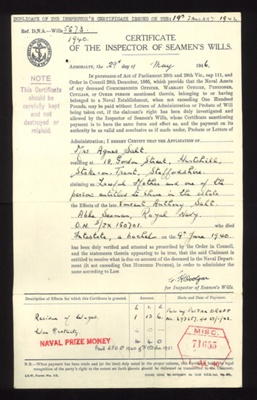 DUPLICATE OF THE INSPECTOR'S CERTIFICATE ISSUED ON THE 19th JANUARY 1942
Ref. D.N.A.—Wills
1940.
CERTIFICATE
OF THE INSPECTOR OF SEAMEN'S WILLS.
ADMIRALTY, the 29th day of May 1946.
NOTE
This Certificate
should be
carefully kept
and not
destroyed or
mislaid.
In pursuance of Act of Parliament 28th and 29th Vic., cap 111, and
Order in Council 28th December, 1865, providing that the Naval Assets
of any deceased COMMISSIONED OFFICER, WARRANT OFFICER, PENSIONER,
CIVILIAN, or OTHER PERSON mentioned therein, belonging to or having
belonged to a Naval Establishment, when not exceeding One Hundred
Pounds, may be paid without Letters of Administration or Probate of Will
being taken out, if the claimant's right has been duly investigated and
allowed by the Inspector of Seamen's Wills, whose Certificate sanctioning
payment is to have the same force and effect as, and the payment on its
authority be as valid and conclusive as if made under, Probate or Letters of
Administration; I HEREBY CERTIFY THAT THE APPLICATION OF
Mrs Agnes Salt.
residing at 18, Gordon Street, Hartshill,
Stoke-on-Trent, Staffordshire.
claiming as Lawful Mother and one of the
persons entitled to share in the Estate
the Effects of the late Vincent Anthony Salt.
Able Seaman, Royal Navy.
Intestate, a bachelor on the 9th June 1940.
has been duly verified and attested as prescribed by the Order in Council
and the statements therein appearing to be true, that the said Claimant is
entitled to receive what is due on account of the deceased in the Naval Department
(it not exceeding ONE HUNDRED POUNDS), in order to administer
the same according to Law
for Inspector of Seamen's Wills.
Description of Effects for which this Certificate is granted.
Amount.
Date and Mode of Payment.
£ s. d.
Residue of Wages.
War Gratuity
NAVAL PRIZE MONEY
4 0
MISC.
71655